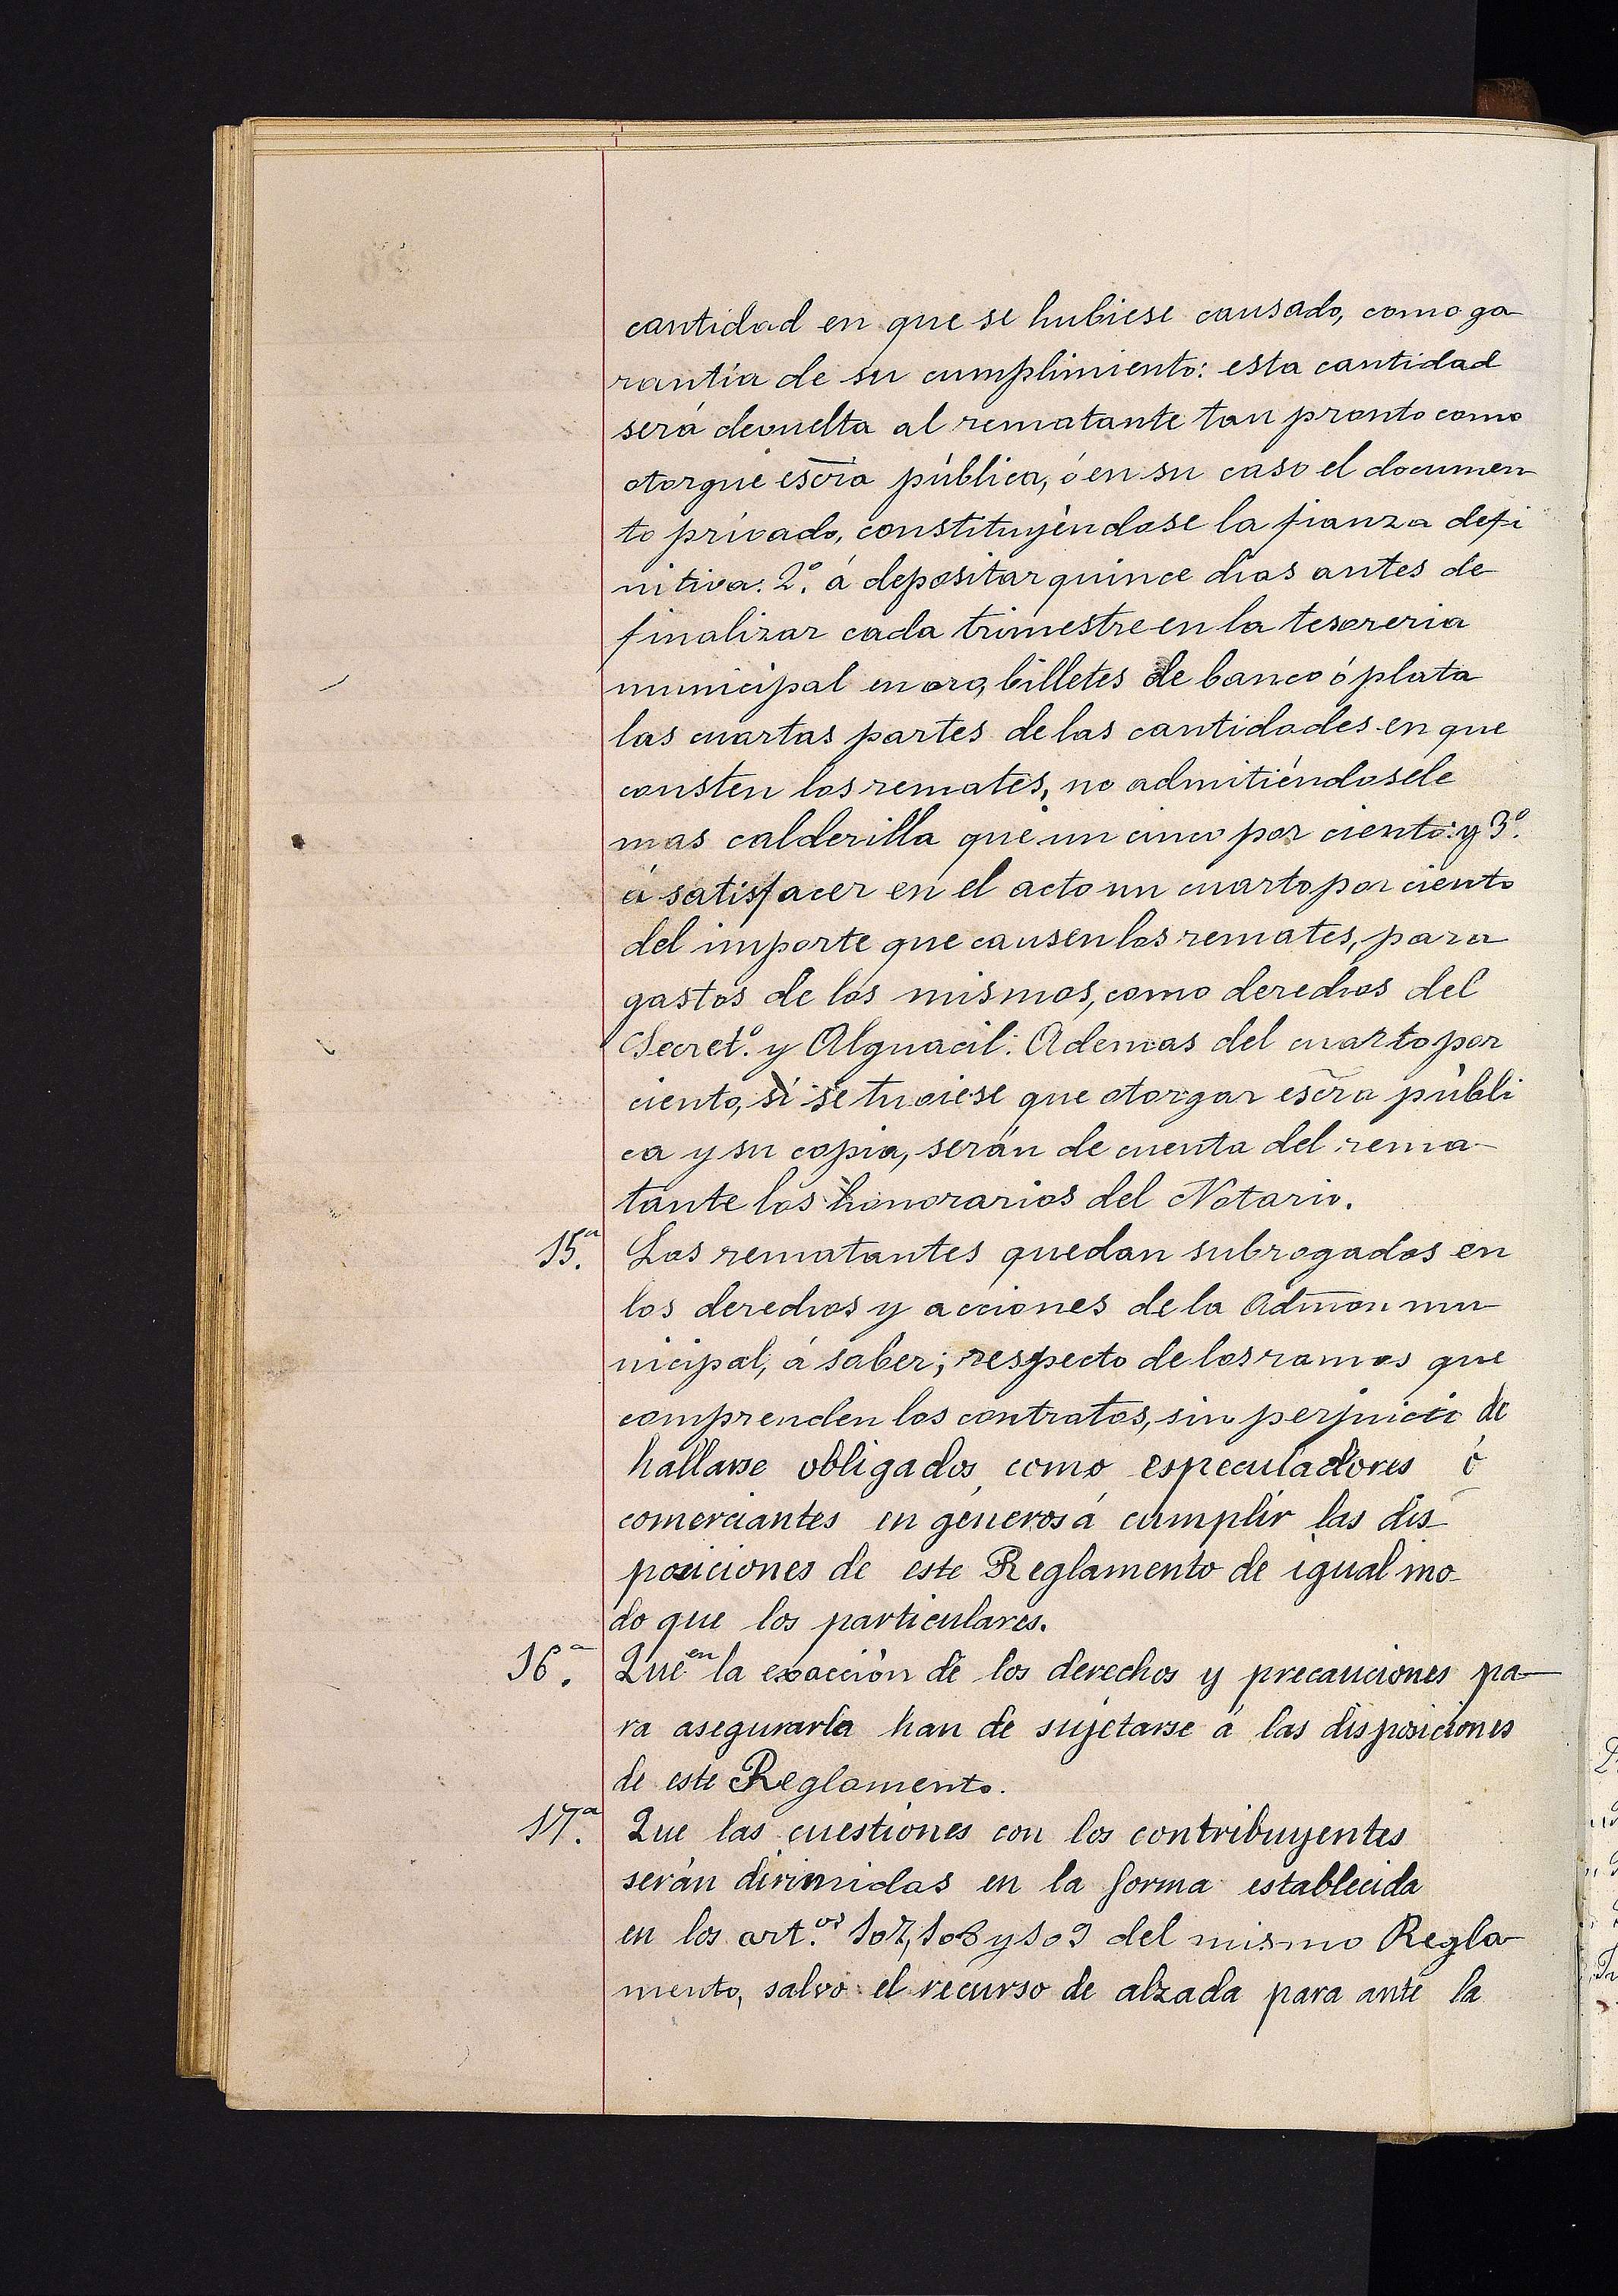 cantidad en que se hubiese causado, como ga
rantía de su cumplimiento: esta cantidad
será devuelta al rematante tan pronto como
otorgue escra pública, ó en su caso el documen
to privado, constituyéndose la fianza defi
nitiva: 2º. á depositar quince dias antes de
finalizar cada trimestre en la tesoreria
municipal en oro, billetes de banco ó plata
las cuartas partes de las cantidades en que
consten los remates, no admitiéndosele
mas calderilla que un cinco por ciento: y 3º.
á satisfacer en el acto un cuarto por ciento
del importe que causen los remates, para
gastos de los mismos, como derechos del
Secretº. y Alguacil. Ademas del cuarto por
ciento, si se tuviese que otorgar escra públi
ca y su copia, serán de cuenta del rema-
tante los honorarios del Notario.
15ª. Los rematantes quedan subrogados en
los derechos y acciones de la Admon mu
nicipal, á saber; respecto de los ramos que
comprenden los contratos, sin perjuicio de
hallarse obligados, como especuladores ó
comerciantes en géneros á cumplir las dis-
posiciones de este Reglamento de igual mo-
do que los particulares.
16ª. Que en la exacción de los derechos y precauciones pa-
ra asegurarla han de sujetarse á las disposiciones
de este Reglamento.
17ª. Que las cuestiones con los contribuyentes
serán dirimidas en la forma establecida
en los art.os 107, 108 y 109 del mismo Regla-
mento, salvo el recurso de alzada para ante la